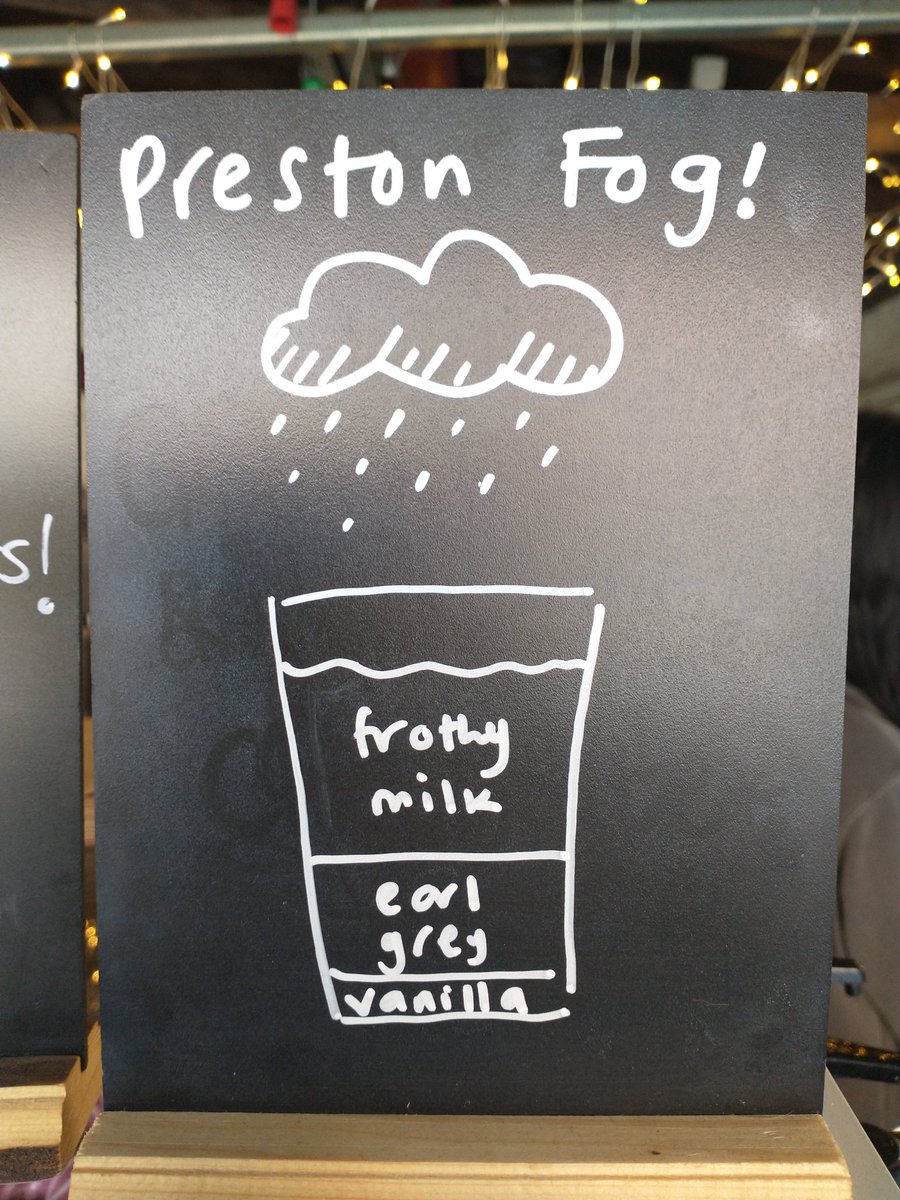 Preston Fog!
s!
frothy
milk
earl
grey
vanilla